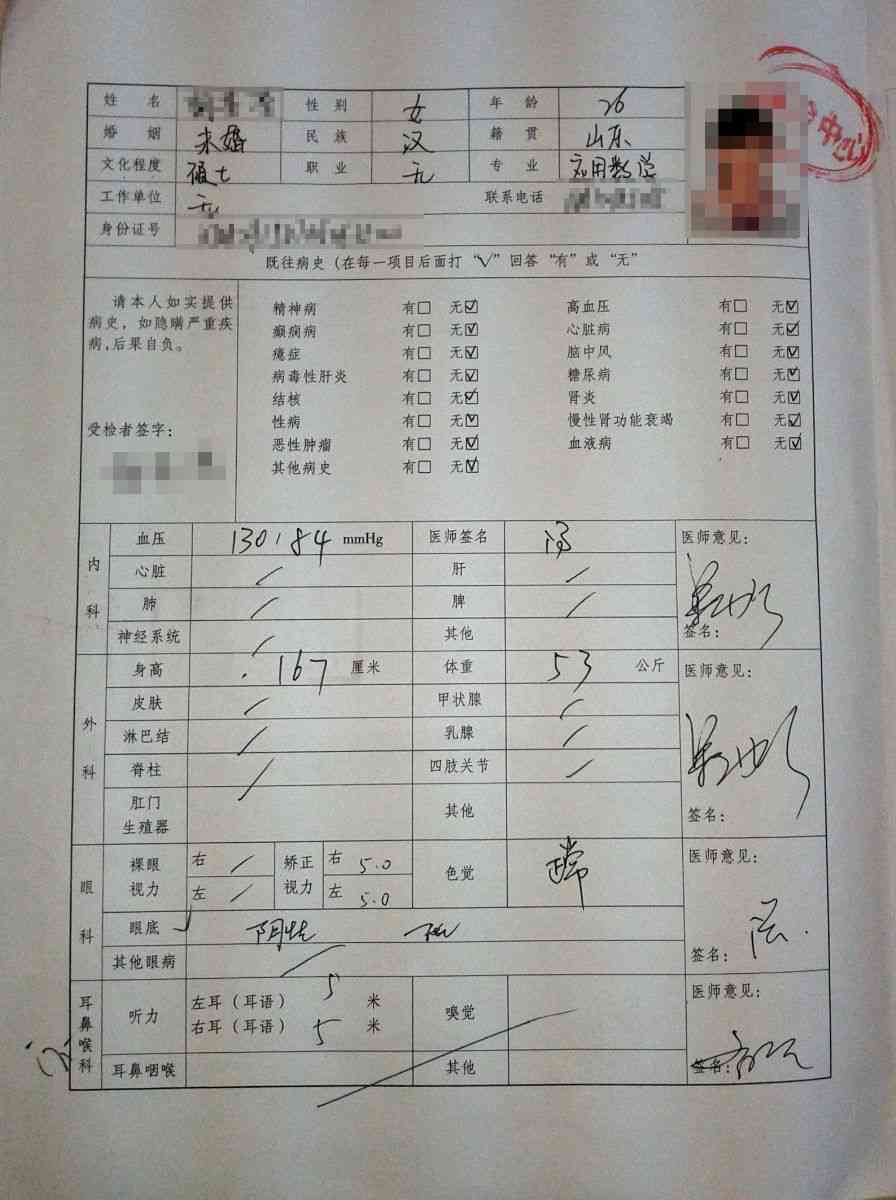 中心
姓 名 性 别 女 年 龄 26
婚 姻 未婚 民 族 汉 籍 贯 山东
文化程度 硕士 职 业 无 专 业 应用数学
工作单位 无 联系电话
身份证号
既往病史(在每一项目后面打“√”回答“有”或“无”
请本人如实提供
病史,如隐瞒严重疾
病,后果自负。
受检者签字:
精神病 有□ 无☑ 高血压 有□ 无☑
癫痫病 有□ 无☑ 心脏病 有□ 无☑
癔症 有□ 无☑ 脑中风 有□ 无☑
病毒性肝炎 有□ 无☑ 糖尿病 有□ 无☑
结核 有□ 无☑ 肾炎 有□ 无☑
性病 有□ 无☑ 慢性肾功能衰竭 有□ 无☑
恶性肿瘤 有□ 无☑ 血液病 有□ 无☑
其他病史 有□ 无☑
内科 血压 130/84 mmHg 医师签名 医师意见:
心脏 / 肝 /
肺 / 脾 /
神经系统 / 其他 签名:
外科 身高 167 厘米 体重 53 公斤 医师意见:
皮肤 / 甲状腺 /
淋巴结 / 乳腺 /
脊柱 / 四肢关节 /
肛门
生殖器 其他 签名:
眼科 裸眼视力 右 / 矫正视力 右 5.0 色觉 正常 医师意见:
左 / 左 5.0
眼底 阴性 签名:
其他眼病 /
耳鼻喉科 听力 左耳(耳语) 5 米 嗅觉 医师意见:
右耳(耳语) 5 米
耳鼻咽喉 其他 签名: